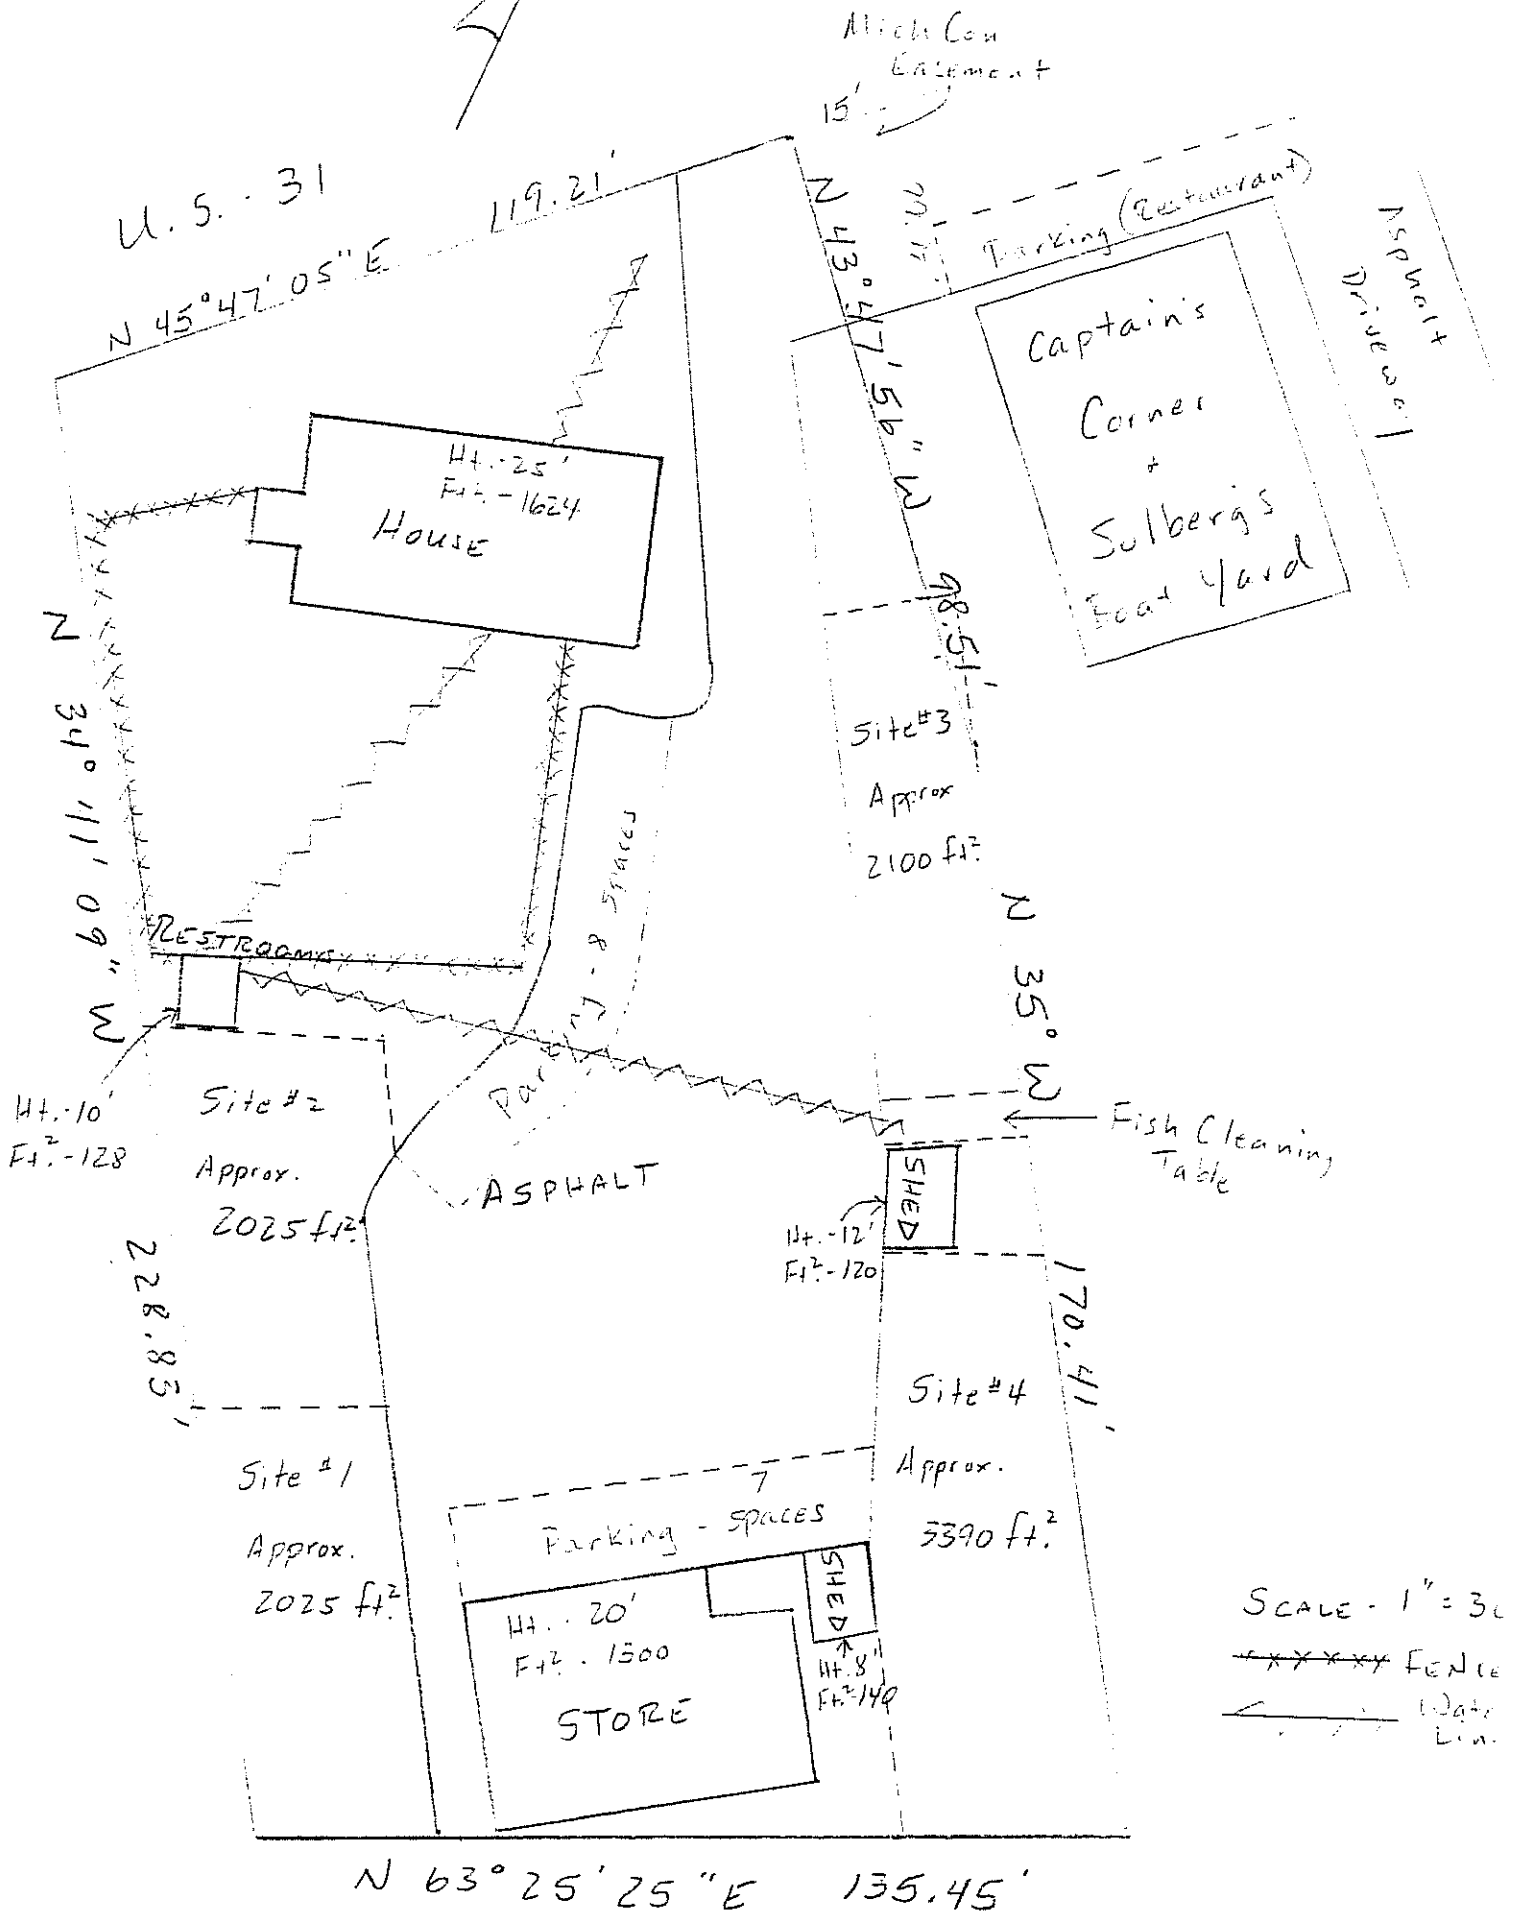 Mich Con
Easement
15'
U.S. - 31
119.21'
N 45°47' 05" E
N 43°47' 56" W 98.51'
Parking (Restaurant)
Asphalt
Driveway
Captain's
Corner
+
Sulberg's
Boat Yard
Ht. - 25'
Ft². - 1624
HOUSE
N 34° 41' 09" W 228.83'
Site #3
Approx
2100 ft²
Parking - 8 Spaces
RESTROOMS
N 35° W 170.41'
Ht. - 10'
Ft². - 128
Site #2
Approx.
2025 ft²
ASPHALT
Fish Cleaning
Table
SHED
Ht. - 12'
Ft². - 120
Site #4
Approx.
5390 ft.²
Site #1
Approx.
2025 ft²
7
Parking - Spaces
SHED
Ht. 8'
Ft² - 140
Ht. - 20'
Ft² - 1500
STORE
SCALE - 1" = 3
FENCE
N 63° 25' 25" E 135.45'